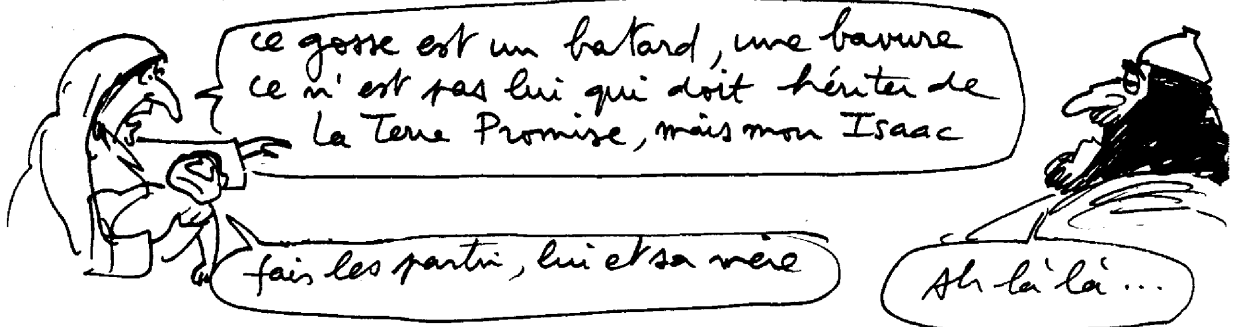 ce gosse est un batard, une bavure
ce n'est pas lui qui doit hériter de
la Terre Promise, mais mon Isaac
fais les partir, lui et sa mère
Ah là là...